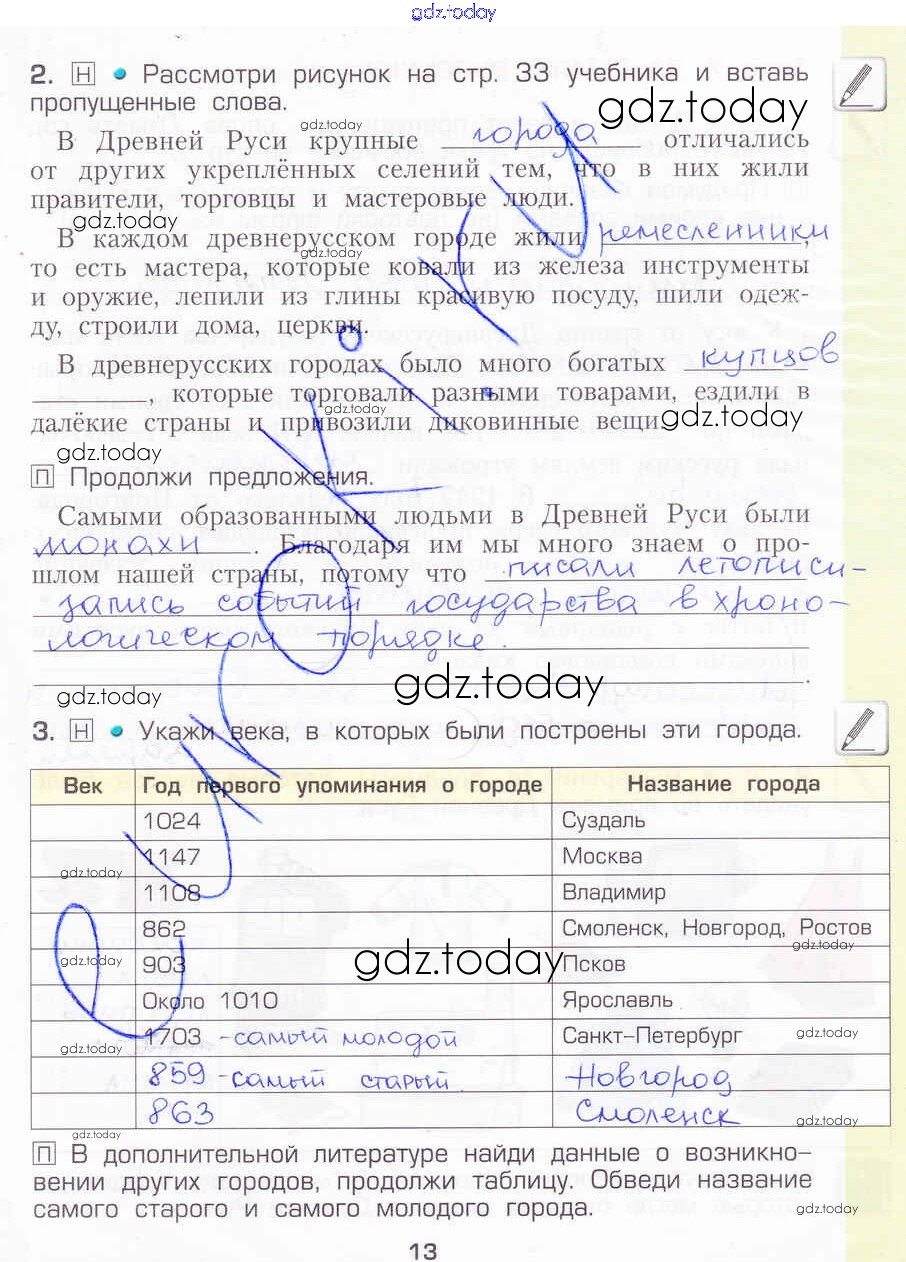 gdz.today
2. Н • Рассмотри рисунок на стр. 33 учебника и вставь
пропущенные слова.
gdz.today
gdz.today
В Древней Руси крупные города отличались
от других укреплённых селений тем, что в них жили
правители, торговцы и мастеровые люди.
gdz.today
В каждом древнерусском городе жили ремесленники,
gdz.today
то есть мастера, которые ковали из железа инструменты
и оружие, лепили из глины красивую посуду, шили одеж-
ду, строили дома, церкви.
В древнерусских городах было много богатых купцов
, которые торговали разными товарами, ездили в
gdz.today
далёкие страны и привозили диковинные вещи.
gdz.today
gdz.today
П Продолжи предложения.
Самыми образованными людьми в Древней Руси были
монахи. Благодаря им мы много знаем о про-
шлом нашей страны, потому что писали летописи-
запись событий государства в хроно-
логическом порядке.
.
gdz.today
gdz.today
3. Н • Укажи века, в которых были построены эти города.
Век Год первого упоминания о городе Название города
1024 Суздаль
1147 Москва
gdz.today
1108 Владимир
862 Смоленск, Новгород, Ростов
gdz.today
gdz.today
gdz.today
903 Псков
Около 1010 Ярославль
1703 - самый молодой Санкт-Петербург
gdz.today
gdz.today
859 - самый старый - Новгород
863 Смоленск
gdz.today
gdz.today
П В дополнительной литературе найди данные о возникно-
вении других городов, продолжи таблицу. Обведи название
самого старого и самого молодого города.
gdz.today
13